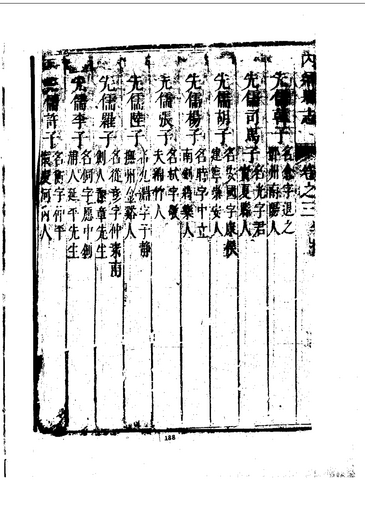 卷之三
先儒韓子名愈字退之鄧州南陽人
先儒司馬子名光字君實夏縣人
先儒胡子名安國字康侯建寧崇安人
先儒楊子名時字中立南劍將樂人
先儒張子名栻字敬夫綿竹人
先儒陸子名九淵字子靜撫州金谿人
先儒羅子名從彥字仲素南劍人豫章先生
先儒李子名侗字愿中劍浦人延平先生
先儒許子名衡字仲平河內人
188